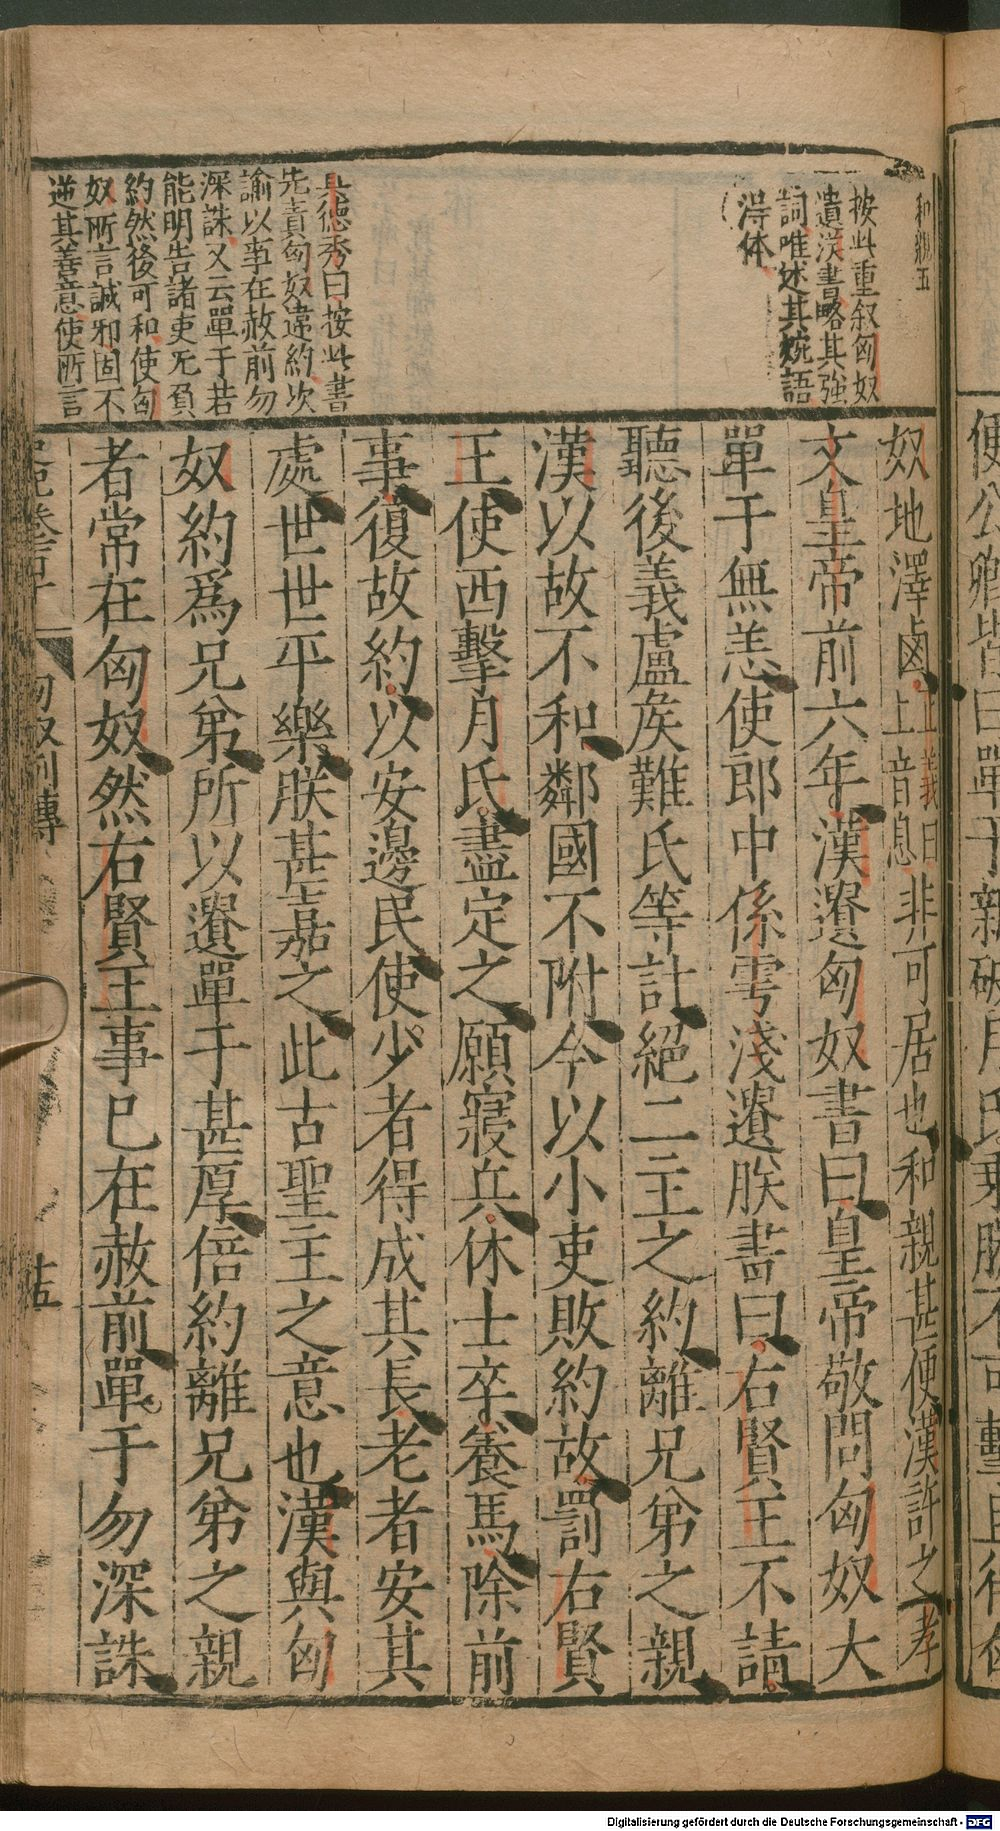 和親五
按此重叙匈奴
遺漢書略其強
詞唯述其婉語
得体
真德秀曰按此書
先責匈奴違約次
諭以事在赦前勿
深誅又云單于若
能明告諸吏无負
約然後可和使匈
奴所言誠邪固不
逆其善意使所言
奴地澤鹵正義曰上音息非可居也和親甚便漢許之孝
文皇帝前六年漢遺匈奴書曰皇帝敬問匈奴大
單于無恙使郎中係雩淺遺朕書曰右賢王不請
聽後義盧矦難氏等計絕二主之約離兄弟之親
漢以故不和鄰國不附今以小吏敗約故罰右賢
王使西擊月氏盡定之願寢兵休士卒養馬除前
事復故約以安邊民使少者得成其長老者安其
處世世平樂朕甚嘉之此古聖主之意也漢與匈
奴約爲兄弟所以遺單于甚厚倍約離兄弟之親
者常在匈奴然右賢王事已在赦前單于勿深誅
匈奴列傳
Digitalisierung gefördert durch die Deutsche Forschungsgemeinschaft - DFG